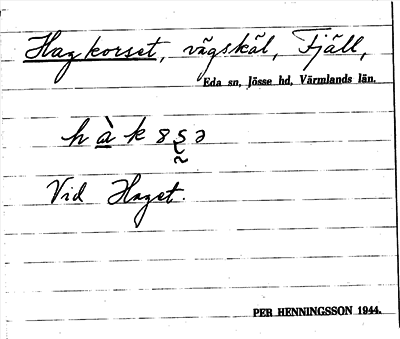 Hagkorset, vägskäl, Fjäll,
Eda sn, Jösse hd, Värmlands län.
Vid Haget.
PER HENNINGSSON 1944.